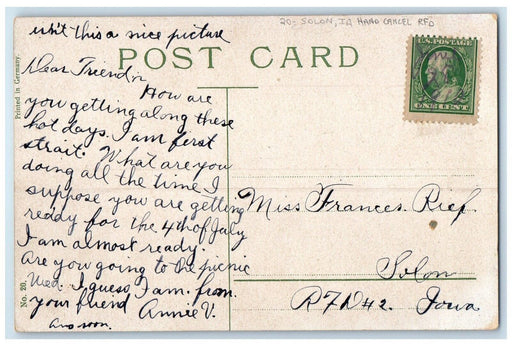 isn't this a nice picture
20- SOLON, IA HAND CANCEL RFD
POST CARD
Printed in Germany.
U.S. POSTAGE
ONE CENT
Dear Friend
How are
you getting along these
hot days. I am first
strait. What are you
doing all the time I
suppose you are getting
ready for the 4th of July
I am almost ready.
Are you going to the picnic
Wed. I guess I am. from
your friend Annie V.
Ans soon.
No. 20,
Miss Frances. Rief.
Solon
RFD #2. Iowa